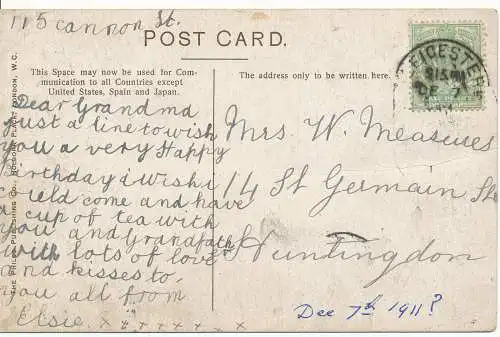 115 Cannon St.
POST CARD.
This Space may now be used for Com-
munication to all Countries except
United States, Spain and Japan.
The address only to be written here.
Dear Grandma
Just a line to wish
you a very Happy
birthday i wish i
could come and have
cup of tea with
you and Grandfath
with lots of love
and kisses to
you all from
Elsie. x x x x x x x
Mrs. W. Measures
14 St Germain St
Huntingdon
LEICESTER
8 15 PM
DE 7
11
Dec 7th 1911?